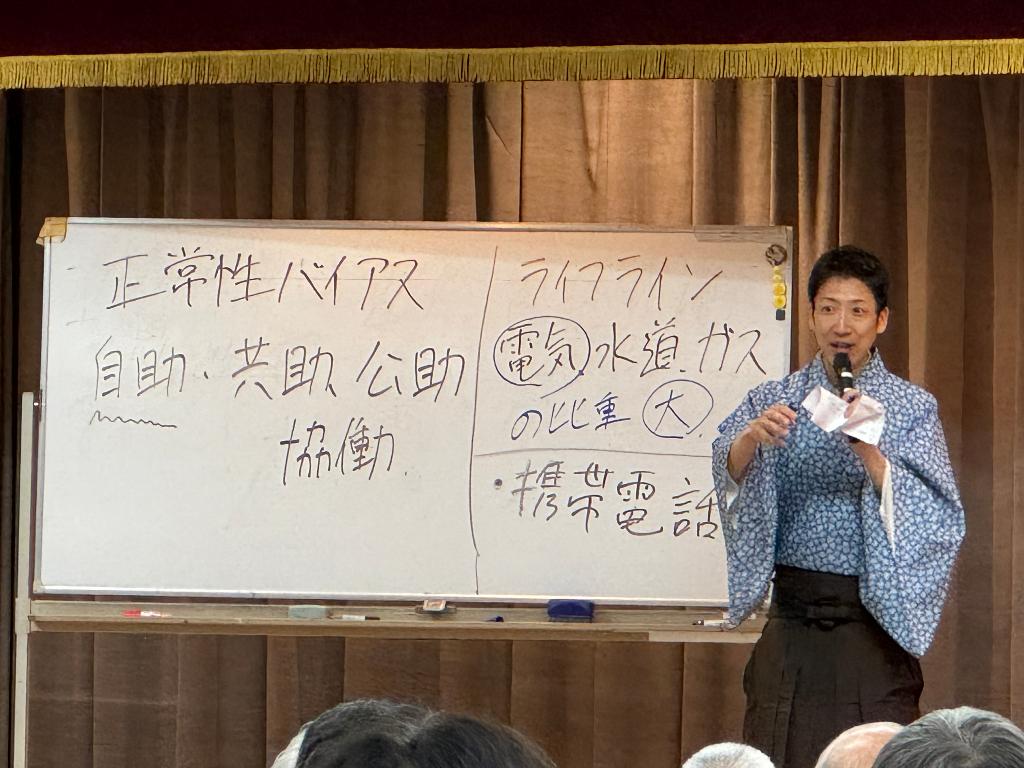 正常性バイアス
自助、共助、公助
協働.
ライフライン
電気、水道、ガス
の比重 大.
・携帯電話